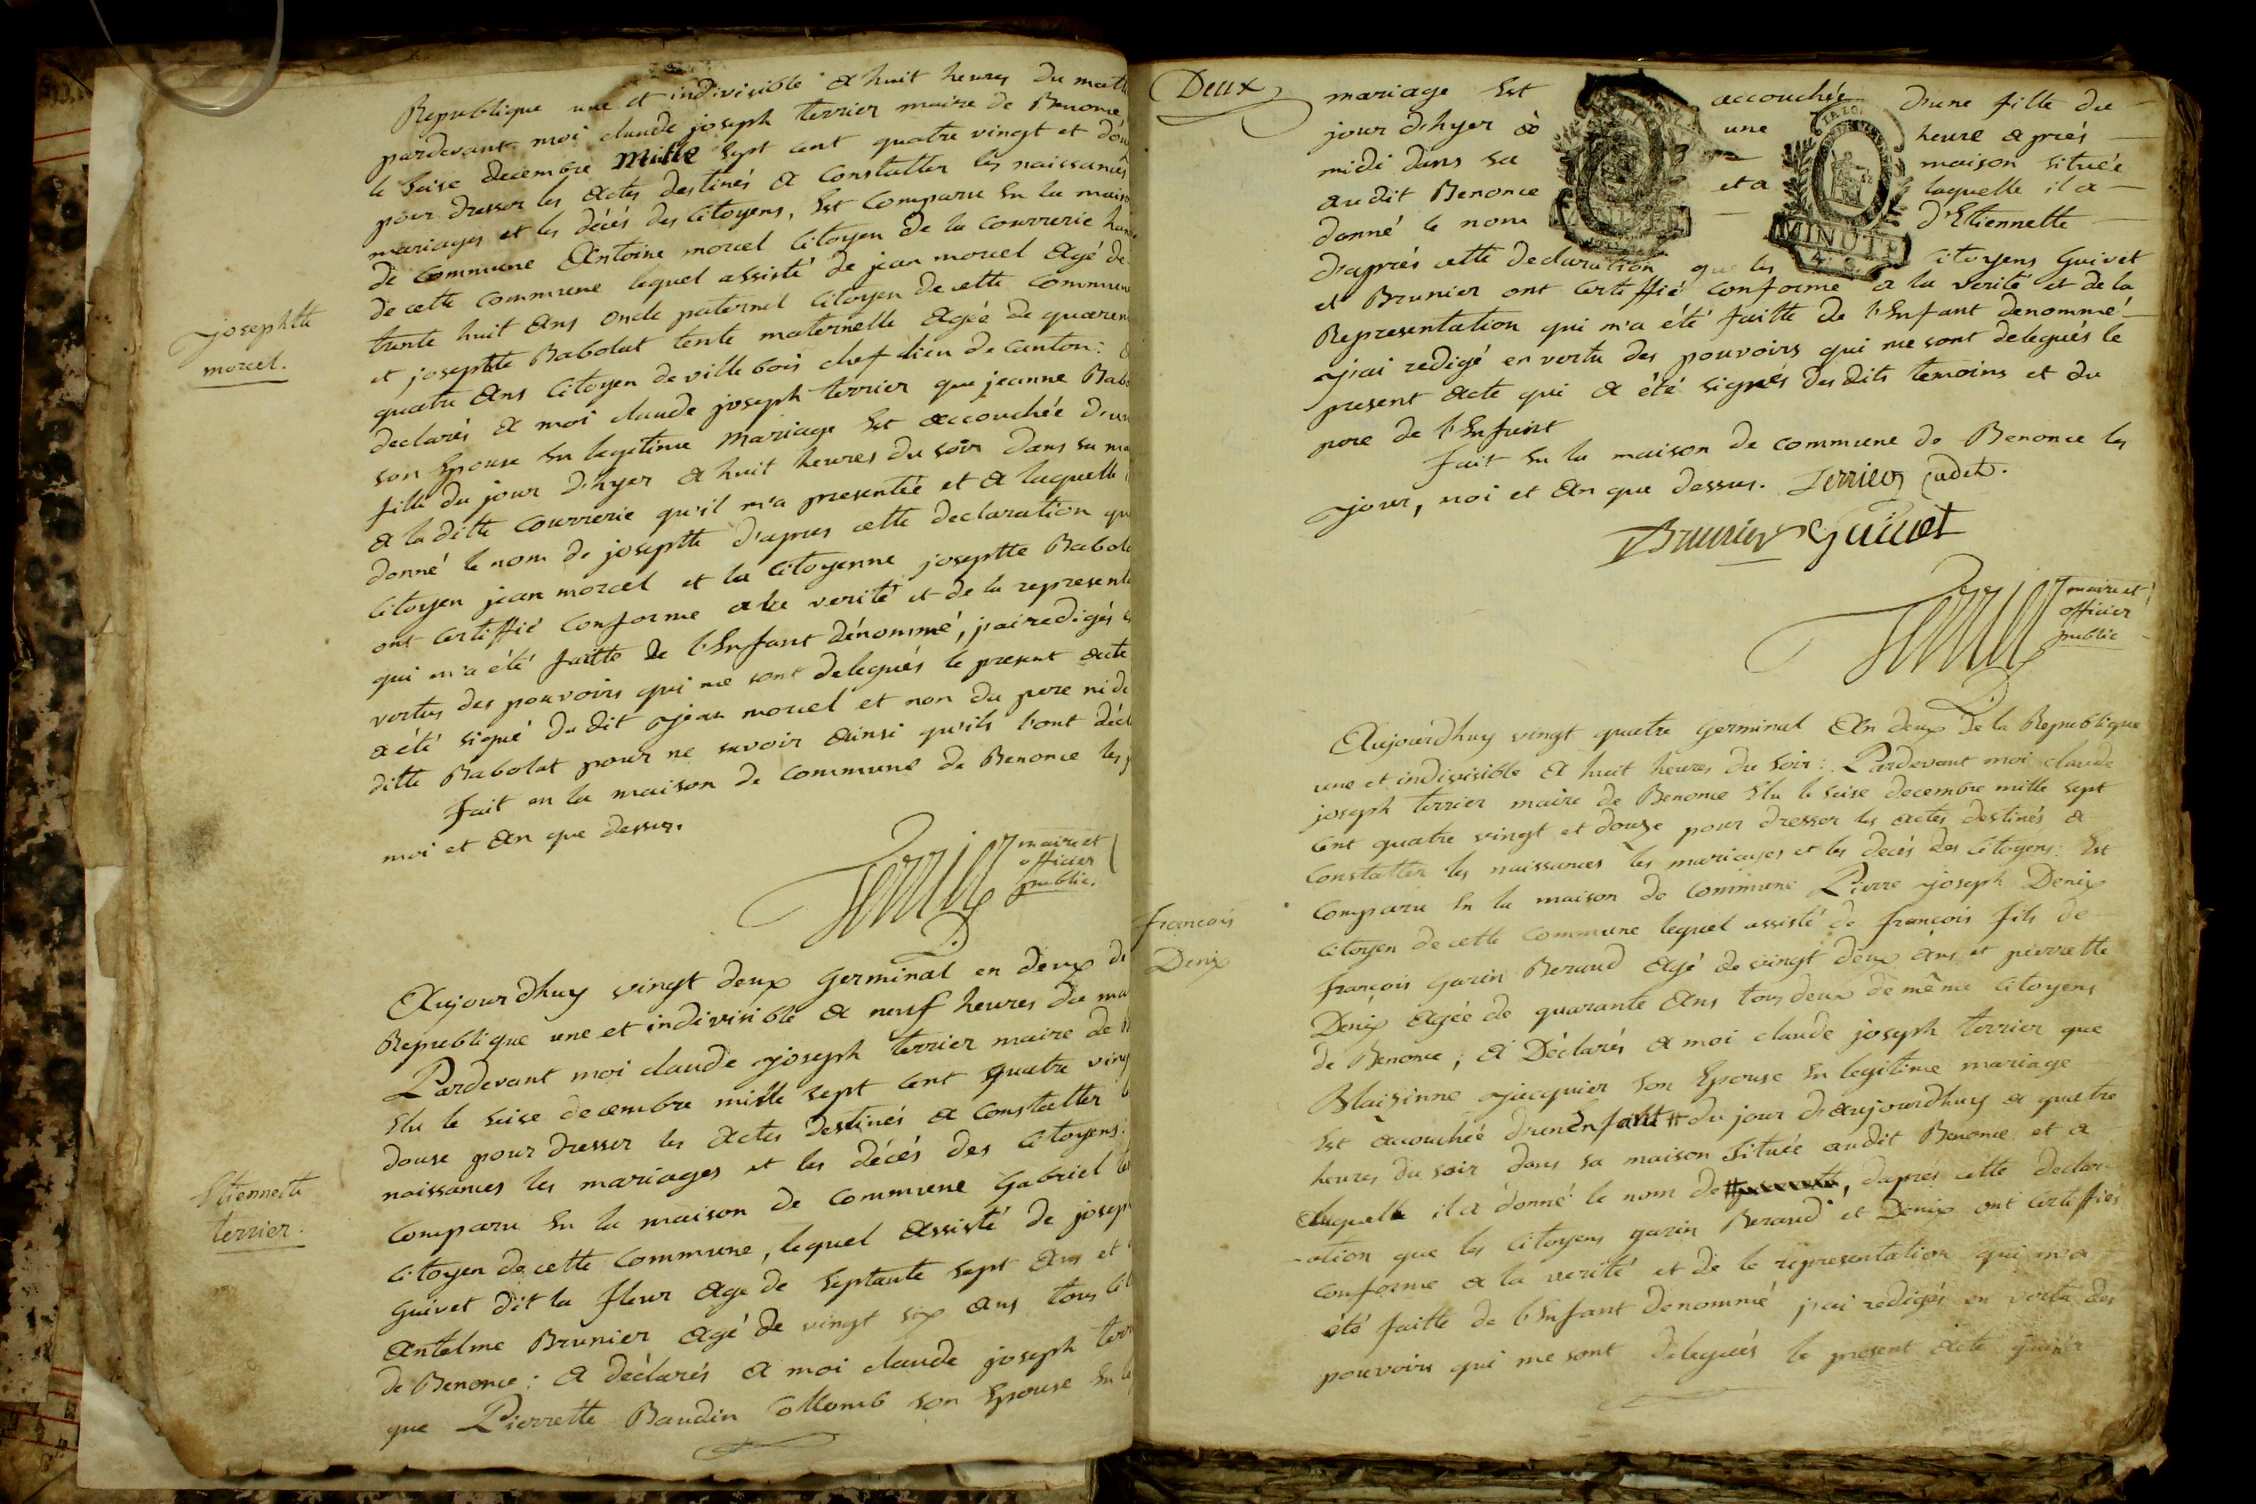 Republique une et indivisible a huit heures du mat
pardevant moi claude joseph terrier maire de Benonce
le seise decembre mille sept cent quatre vingt et dou
pour dresser les actes destinés a constatter les naissances
mariages et les décés des citoyens, Est comparu En la maison
de commune Antoine morcel citoyen de la courrerie
de cette commune lequel assisté de jean morcel Agé de
josephte
morcel.
trente huit Ans oncle paternel citoyen de cette commune
et josephte Babolat tente maternelle Agée de quaren
quatre Ans citoyen de villebois chef lieu de canton: a
declarés a moi claude joseph terrier que jeanne Bab
son Epouse En legitime mariage Est accouchée d'un
fille du jour d'hyer a huit heures du soir dans sa ma
a la ditte courrerie qu'il m'a presentée et a laquelle
donné le nom de josephte d'apres cette declaration qu
citoyen jean morcel et la citoyenne josephte Babol
ont certiffié conforme a la verité et de la represent
qui m'a été faitte de l'Enfant dénommé, j'ai redigés
vertus des pouvoirs qui me sont delegués le present acte
a été signé du dit jean morcel et non du pere ni de
ditte Babolat pour ne savoir Ainsi qu'ils l'ont décl
fait en la maison de commune de Benonce les
moi et an que dessus.
Terrier maire et
officier
public.
Aujourdhuy vingt deux germinal en deux de
Republique une et indivisible a neuf heures du ma
Pardevant moi claude joseph terrier maire de
Elu le seise decembre mille sept cent quatre ving
douse pour dresser les actes destinés a constatter
naissances les mariages et les décés des citoyens:
Etiennette
terrier.
comparu En la maison de commune Gabriel ter
citoyen de cette commune, lequel assisté de josep
Guivet dit la fleur age de septante sept Ans et
Antelme Brunier Agé de vingt six ans tous
de Benonce: a déclarés a moi claude joseph terr
que Pierrette Baudin Collomb son Epouse En
Deux
mariage Est accouchée d'une fille du
jour d'hyer a une heure aprés
midi dans sa maison située
LA LOI
audit Benonce et a laquelle il a
donné le nom d'Etiennette
MINUTE
d'aprés cette declaration que les citoyens Guivet
et Brunier ont certiffié conforme a la verité et de la
Representation qui m'a été faitte de l'Enfant denommé
j'ai redigé en vertu des pouvoirs qui me sont delegués le
present acte qui a été signés des dits temoins et du
pere de l'Enfant
fait En la maison de commune de Benonce les
jour, moi et An que dessus. Terrier cadet.
Brunier Guivet
Terrier maire et
officier
public
Aujourdhuy vingt quatre germinal An deux de la Republique
une et indivisible a huit heures du soir: Pardevant moi claude
joseph terrier maire de Benonce Elu le seise decembre mille sept
cent quatre vingt et douze pour dresser les actes destinés a
constatter les naissances les mariages et les decés des citoyens: Est
comparu En la maison de commune Pierre joseph Denix
françois
Denix
citoyen de cette commune lequel assisté de françois fils de
françois garin Beraud Agé de vingt deux ans et pierrette
Denix Agée de quarante Ans tous deux de même citoyens
de Benonce; a Déclarés a moi claude joseph terrier que
Blaisinne jacquier son Epouse En legitime mariage
Est accouchée d'un Enfant du jour d'aujourdhuy a quatre
heures du soir dans sa maison située audit Benonce et a
laquelle il a donné le nom de, daprés cette declar-
-ation que les citoyens garin Beraud et Denix ont certiffiés
conforme a la verité et de le représentation qui m'a
été faitte de l'Enfant denommé j'ai redigés en vertu des
pouvoirs qui me sont delegués le present acte qui a